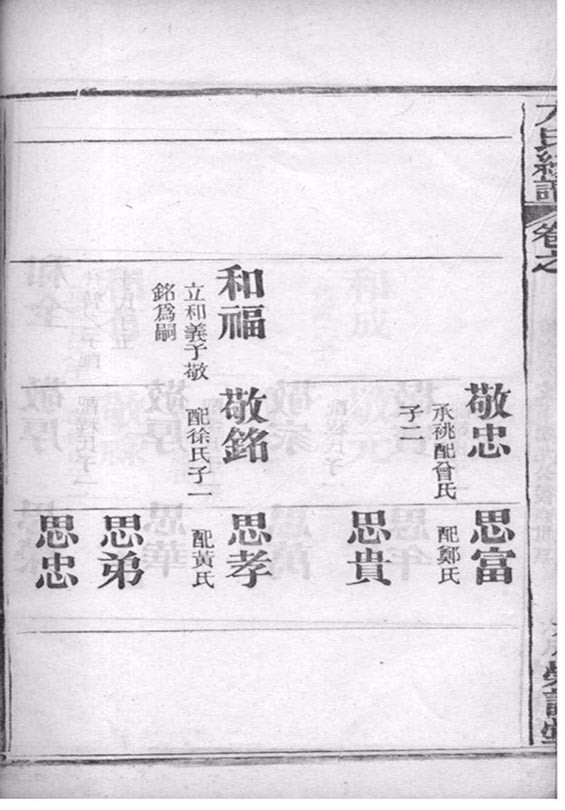 氏續譜
卷之
和福
立和義子敬
銘爲嗣
敬忠
承祧配曾氏
子二
敬銘
配徐氏子一
思富
配鄭氏
思貴
思孝
配黃氏
思弟
思忠